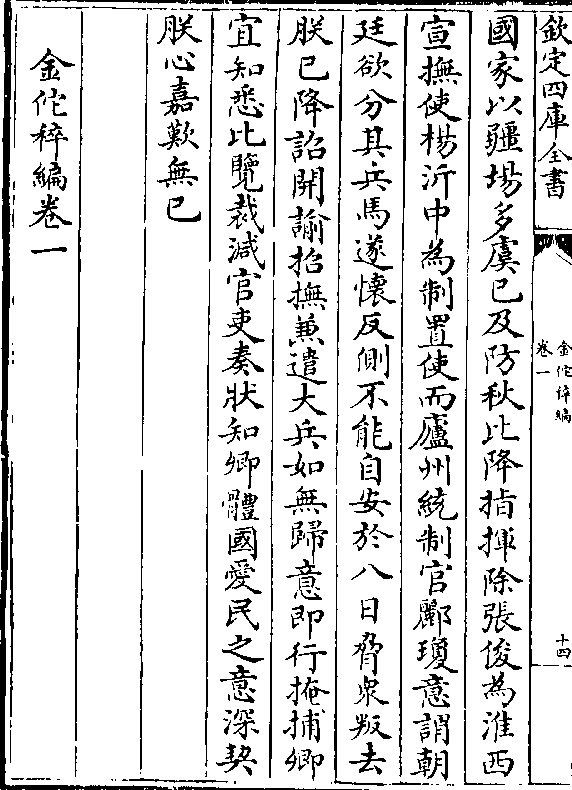 欽定四庫全書
金佗稡編
卷一
十四
國家以疆埸多虞已及防秋比降指揮除張俊為淮西
宣撫使楊沂中為制置使而廬州統制官酈瓊意謂朝
廷欲分其兵馬遂懷反側不能自安於八日脅衆叛去
朕已降詔開諭招撫兼遣大兵如無歸意即行掩捕卿
宜知悉比覽裁減官吏奏狀知卿體國愛民之意深契
朕心嘉歎無已
金佗稡編卷一